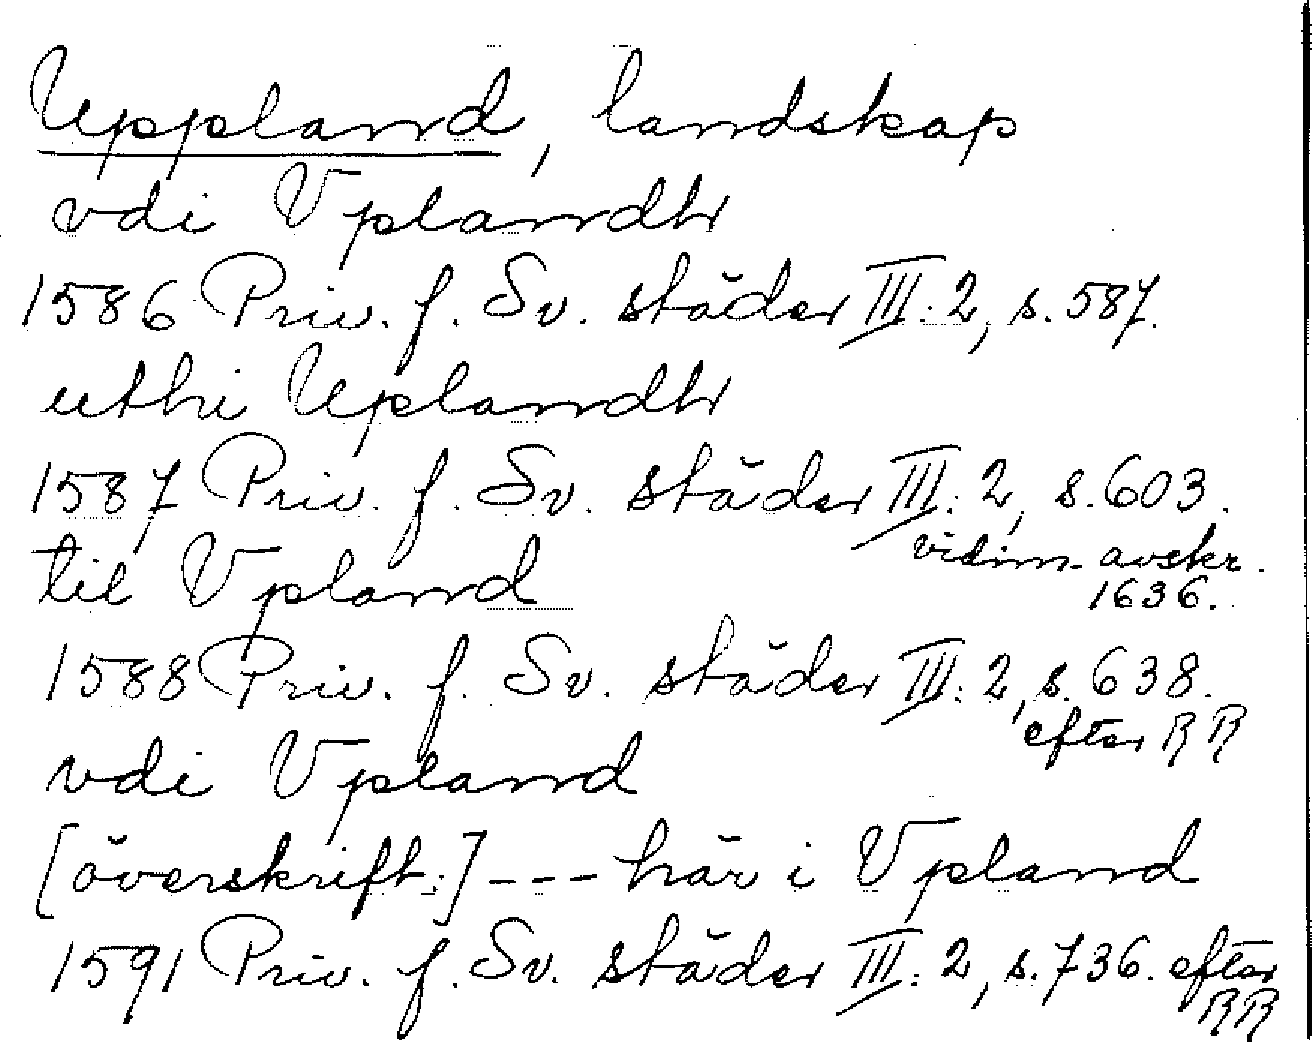 Uppland, landskap
vdi Vplandh
1586 Priv. f. Sv. städer III:2, s. 587.
uthi Uplandh
1587 Priv. f. Sv. städer III:2, s. 603.
vidim. avskr.
1636.
til Vpland
1588 Priv. f. Sv. städer III:2, s. 638.
efter RR
vdi Vpland
[överskift:] --- här i Vpland
1591 Priv. f. Sv. städer III:2, s. 736. efter
RR